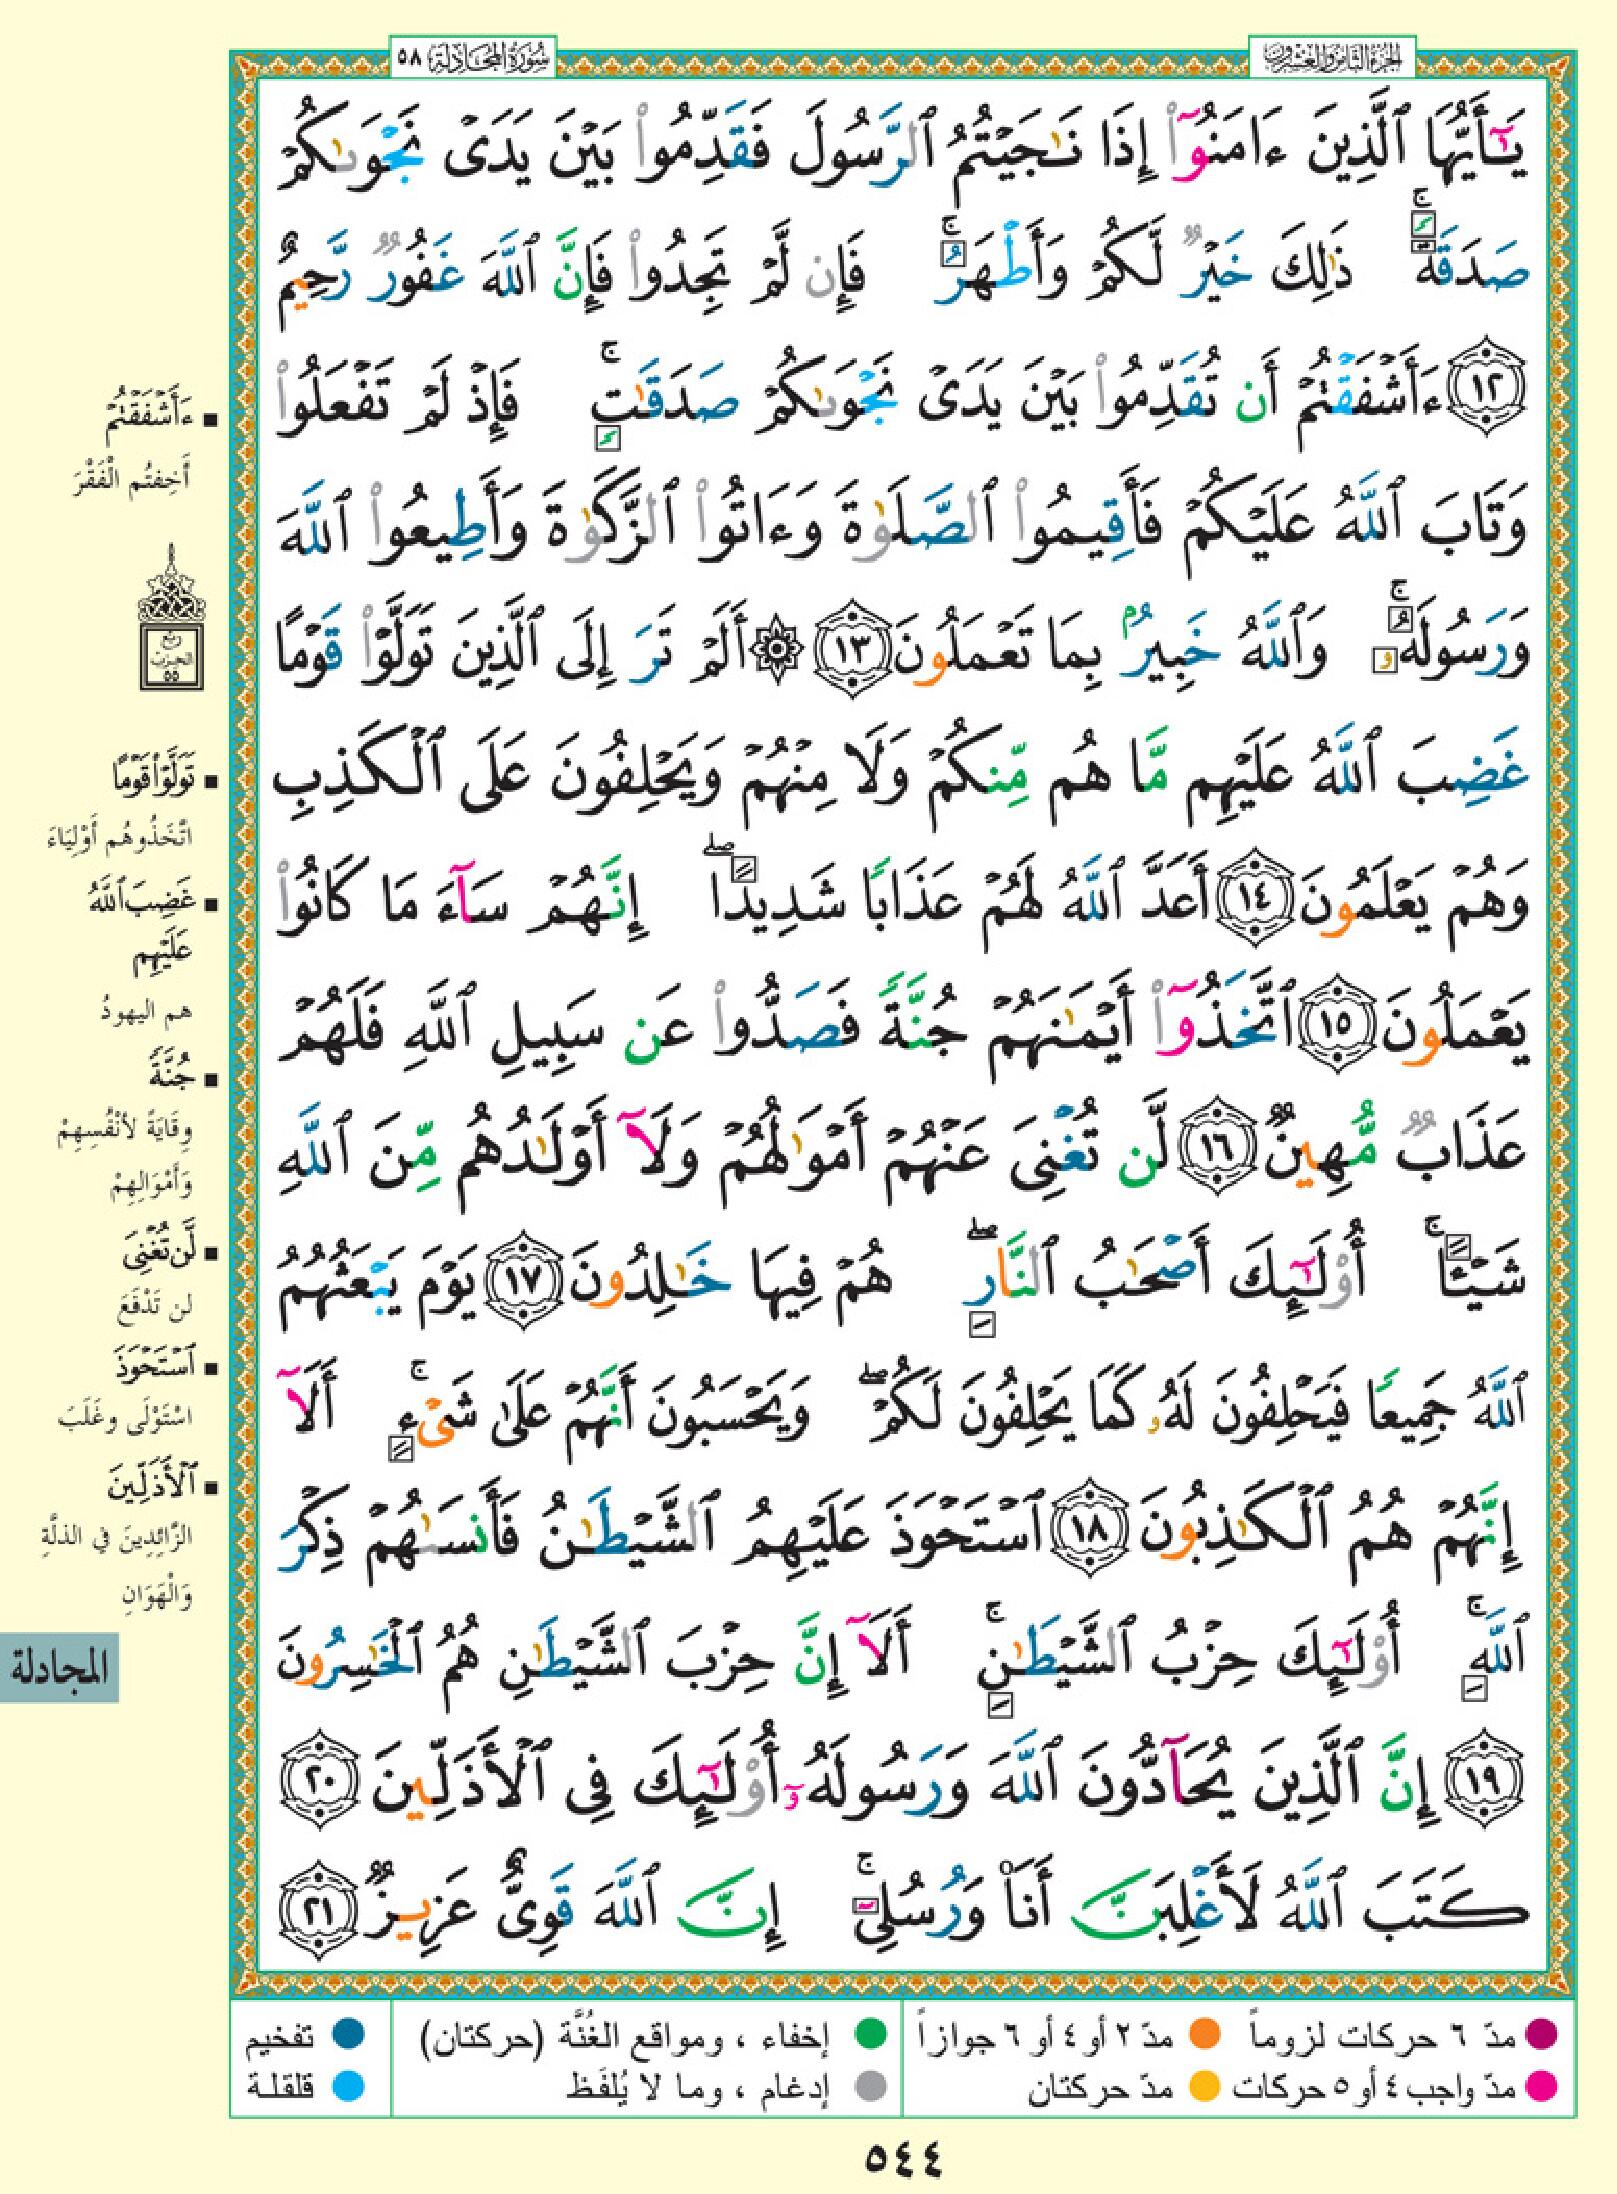 الجزء الثامن والعشرون
سورة المجادلة ٥٨
يَـٰٓأَيُّهَا ٱلَّذِينَ ءَامَنُوٓا۟ إِذَا نَـٰجَيْتُمُ ٱلرَّسُولَ فَقَدِّمُوا۟ بَيْنَ يَدَىْ نَجْوَىٰكُمْ
صَدَقَةًۚ ذَٰلِكَ خَيْرٌ لَّكُمْ وَأَطْهَرُۚ فَإِن لَّمْ تَجِدُوا۟ فَإِنَّ ٱللَّهَ غَفُورٌ رَّحِيمٌ
١٢ ءَأَشْفَقْتُمْ أَن تُقَدِّمُوا۟ بَيْنَ يَدَىْ نَجْوَىٰكُمْ صَدَقَـٰتٍۚ فَإِذْ لَمْ تَفْعَلُوا۟
وَتَابَ ٱللَّهُ عَلَيْكُمْ فَأَقِيمُوا۟ ٱلصَّلَوٰةَ وَءَاتُوا۟ ٱلزَّكَوٰةَ وَأَطِيعُوا۟ ٱللَّهَ
وَرَسُولَهُۥۚ وَٱللَّهُ خَبِيرٌۢ بِمَا تَعْمَلُونَ ١٣ ۞ أَلَمْ تَرَ إِلَى ٱلَّذِينَ تَوَلَّوْا۟ قَوْمًا
غَضِبَ ٱللَّهُ عَلَيْهِم مَّا هُم مِّنكُمْ وَلَا مِنْهُمْ وَيَحْلِفُونَ عَلَى ٱلْكَذِبِ
وَهُمْ يَعْلَمُونَ ١٤ أَعَدَّ ٱللَّهُ لَهُمْ عَذَابًا شَدِيدًاۖ إِنَّهُمْ سَآءَ مَا كَانُوا۟
يَعْمَلُونَ ١٥ ٱتَّخَذُوٓا۟ أَيْمَـٰنَهُمْ جُنَّةً فَصَدُّوا۟ عَن سَبِيلِ ٱللَّهِ فَلَهُمْ
عَذَابٌ مُّهِينٌ ١٦ لَّن تُغْنِىَ عَنْهُمْ أَمْوَٰلُهُمْ وَلَآ أَوْلَـٰدُهُم مِّنَ ٱللَّهِ
شَيْـًٔاۚ أُو۟لَـٰٓئِكَ أَصْحَـٰبُ ٱلنَّارِۖ هُمْ فِيهَا خَـٰلِدُونَ ١٧ يَوْمَ يَبْعَثُهُمُ
ٱللَّهُ جَمِيعًا فَيَحْلِفُونَ لَهُۥ كَمَا يَحْلِفُونَ لَكُمْۖ وَيَحْسَبُونَ أَنَّهُمْ عَلَىٰ شَىْءٍۚ أَلَآ
إِنَّهُمْ هُمُ ٱلْكَـٰذِبُونَ ١٨ ٱسْتَحْوَذَ عَلَيْهِمُ ٱلشَّيْطَـٰنُ فَأَنسَىٰهُمْ ذِكْرَ
ٱللَّهِۚ أُو۟لَـٰٓئِكَ حِزْبُ ٱلشَّيْطَـٰنِۚ أَلَآ إِنَّ حِزْبَ ٱلشَّيْطَـٰنِ هُمُ ٱلْخَـٰسِرُونَ
١٩ إِنَّ ٱلَّذِينَ يُحَآدُّونَ ٱللَّهَ وَرَسُولَهُۥٓ أُو۟لَـٰٓئِكَ فِى ٱلْأَذَلِّينَ ٢٠
كَتَبَ ٱللَّهُ لَأَغْلِبَنَّ أَنَا۠ وَرُسُلِىٓۚ إِنَّ ٱللَّهَ قَوِىٌّ عَزِيزٌ ٢١
ءَأَشْفَقْتُمْ
أَخِفتُم الْفَقْرَ
ربع
الحزب
٥٥
تَوَلَّوْا۟ قَوْمًا
اتَّخَذُوهُم أَوْلِيَاءَ
غَضِبَ ٱللَّهُ
عَلَيْهِم
هم اليهودُ
جُنَّةً
وِقَايَةً لأنْفُسِهِمْ
وَأَمْوَالِهِمْ
لَّن تُغْنِىَ
لن تَدْفَعَ
ٱسْتَحْوَذَ
اسْتَوْلَى وغَلَبَ
ٱلْأَذَلِّينَ
الزَّائِدِينَ في الذلَّةِ
وَالْهَوَانِ
المجادلة
مدّ ٦ حركات لزوماً
مدّ ٢ أو ٤ أو ٦ جوازاً
مدّ واجب ٤ أو ٥ حركات
مدّ حركتان
إخفاء ، ومواقع الغُنَّة (حركتان)
إدغام ، وما لا يُلفَظ
تفخيم
قلقلة
٥٤٤